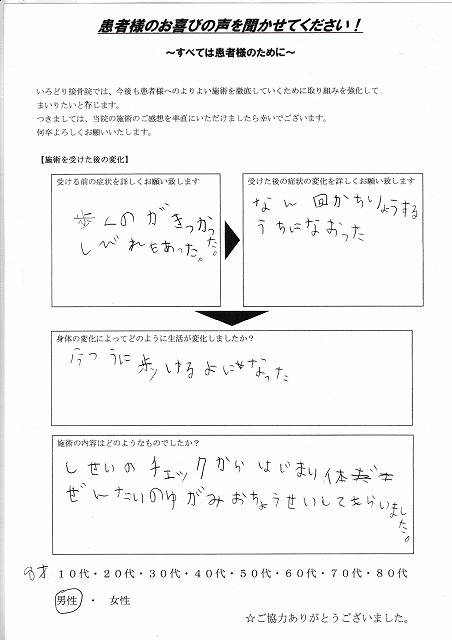 患者様のお喜びの声を聞かせてください!
～すべては患者様のために～
いろどり接骨院では、今後も患者様へのよりよい施術を徹底していくために取り組みを強化して
まいりたいと存じます。
つきましては、当院の施術のご感想を率直にいただけましたら幸いでございます。
何卒よろしくお願いいたします。
【施術を受けた後の変化】
受ける前の症状を詳しくお願い致します
歩くのがきつかった。
しびれもあった。
受けた後の症状の変化を詳しくお願い致します
なん回かちりょうする
うちになおった
身体の変化によってどのように生活が変化しましたか?
ふつうに歩けるよになった
施術の内容はどのようなものでしたか?
しせいのチェックからはじまり体
ぜんたいのゆがみおちょうせいしてもらいました。
8才 10代・20代・30代・40代・50代・60代・70代・80代
男性 ・ 女性
☆ご協力ありがとうございました。